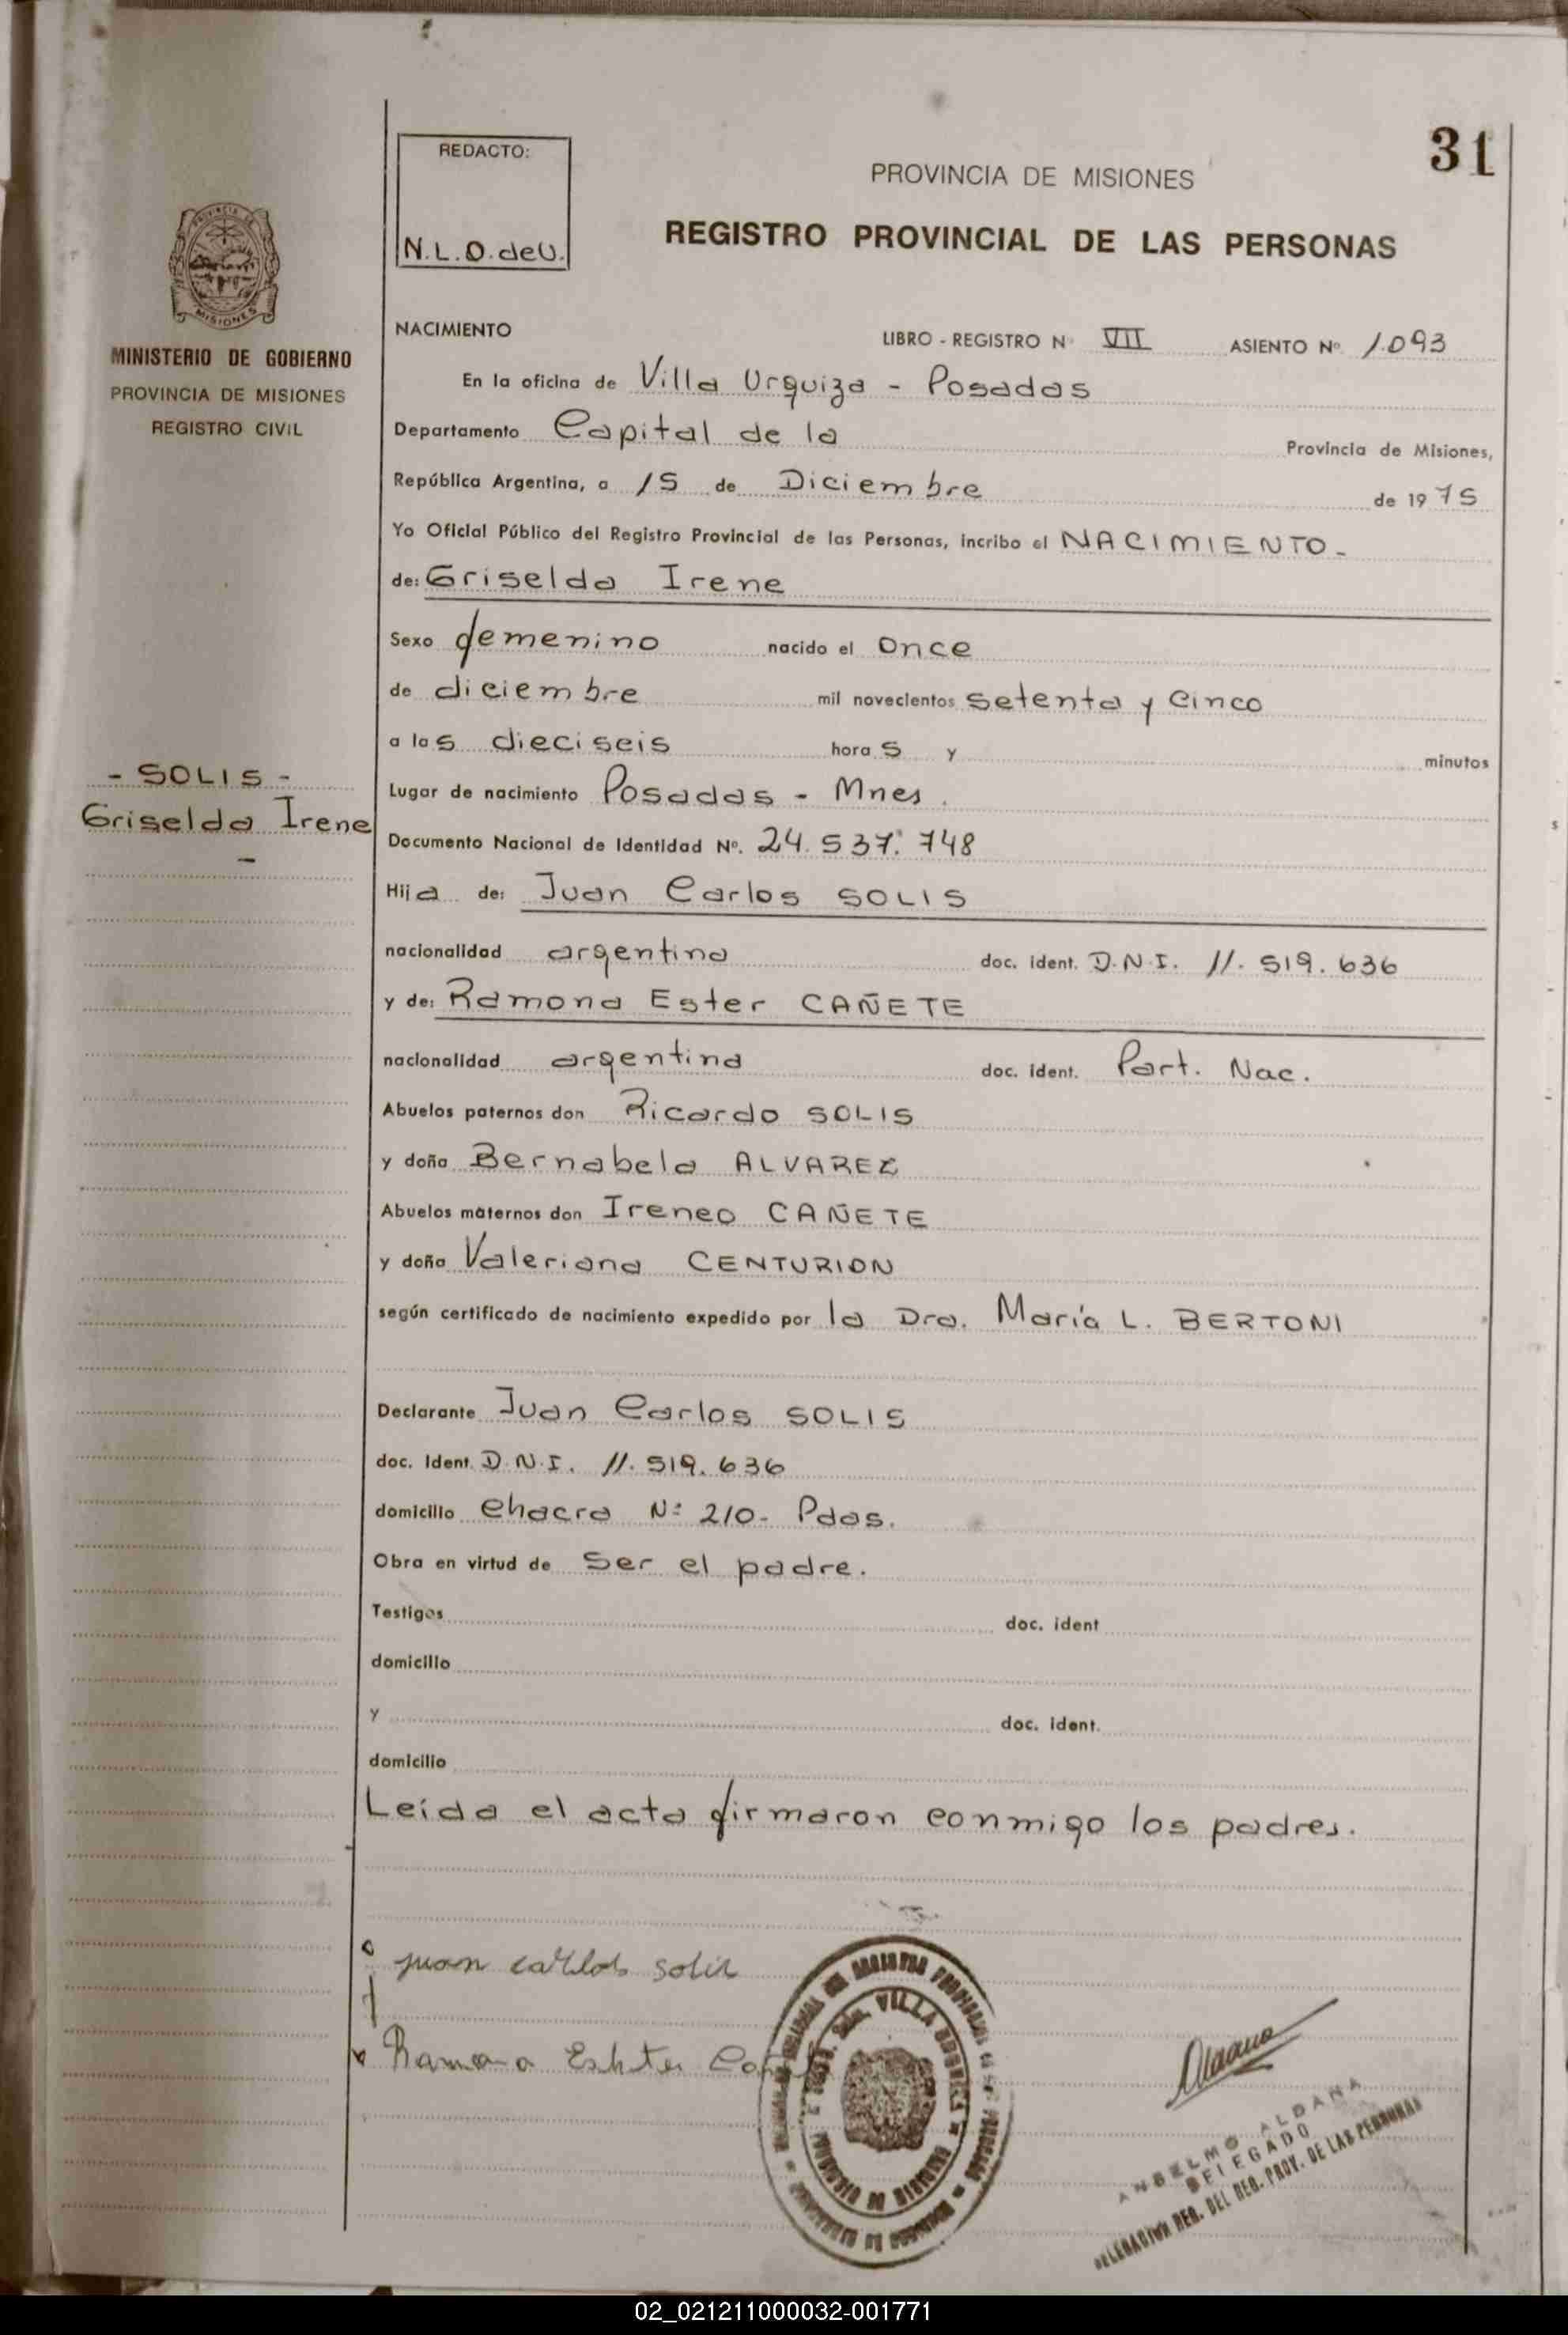 31
REDACTO:
N.L.O. deU.
PROVINCIA DE MISIONES
REGISTRO PROVINCIAL DE LAS PERSONAS
PROVINCIA DE
MISIONES
MINISTERIO DE GOBIERNO
PROVINCIA DE MISIONES
REGISTRO CIVIL
NACIMIENTO LIBRO - REGISTRO Nº VII ASIENTO Nº 1.093
En la oficina de Villa Urquiza - Posadas
Departamento Capital de la Provincia de Misiones,
República Argentina, a 15 de Diciembre de 1975
Yo Oficial Público del Registro Provincial de las Personas, incribo el NACIMIENTO-
de: Griselda Irene
Sexo femenino nacido el once
de diciembre mil novecientos setenta y cinco
a las dieciseis horas y minutos
- SOLIS -
Griselda Irene
-
Lugar de nacimiento Posadas - Mnes.
Documento Nacional de Identidad Nº. 24.537.748
Hija de: Juan Carlos SOLIS
nacionalidad argentina doc. ident. D.N.I. 11.519.636
y de: Ramona Ester CAÑETE
nacionalidad argentina doc. ident. Part. Nac.
Abuelos paternos don Ricardo SOLIS
y doña Bernabela ALVAREZ
Abuelos maternos don Ireneo CAÑETE
y doña Valeriana CENTURION
según certificado de nacimiento expedido por la Dra. María L. BERTONI
Declarante Juan Carlos SOLIS
doc. ident. D.N.I. 11.519.636
domicilio chacra Nº 210- Pdas.
Obra en virtud de ser el padre.
Testigos doc. ident
domicilio
y doc. ident.
domicilio
Leída el acta firmaron conmigo los padres.
juan carlos solis
Ramona Ester
VILLA URQUIZA
ANSELMO ALDANA
DELEGADO
DELEGACION REG. DEL REG. PROV. DE LAS PERSONAS
02_021211000032-001771